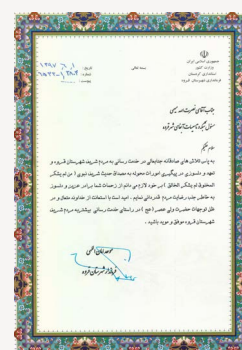 بسمه تعالی
جمهوری اسلامی ایران
وزارت کشور
استانداری کردستان
فرمانداری شهرستان قروه
تاریخ:
شماره:
پیوست:
جناب آقای
سلام علیکم
به پاس تلاش های صادقانه جنابعالی در خدمت رسانی به مردم شریف شهرستان قروه و
تعهد و دلسوزی در پیگیری امورات محوله به مصداق حدیث شریف نبوی ( من لم یشکر
المخلوق لم یشکر الخالق ) بر خود لازم می دانم از زحمات شما برادر عزیز و دلسوز
به خاطر جلب رضایت مردم قدردانی نمایم . امید است با استعانت از خداوند متعال و در
ظل توجهات حضرت ولی عصر (عج ) در راستای خدمت رسانی بیشتر به مردم شریف
شهرستان قروه موفق و موید باشید .
فرماندار شهرستان قروه